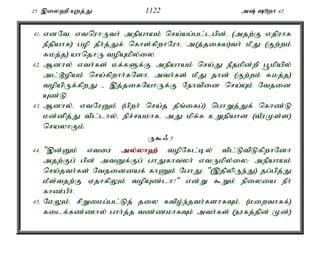 25 இலைஹி யுறத்து 1122 அஷ் ஷூறா 42
41. எனவே, எவரொருவர் அநியாயம் செய்யப்பட்டபின், (அதற்கு எதிராக
நீதியாக) பழி தீர்த்துக் கொள்கிறாரோ, அ(த்தகைய)வர் மீது (குற்றம்
சுமத்த) யாதொரு வழியுமில்லை.
42. ஆனால் எவர்கள் மக்களுக்கு அநியாயம் செய்து நீதமின்றி பூமியில்
அட்டூழியம் செய்கிறார்களோ, அவர்கள் மீது தான் (குற்றம் சுமத்த)
வழியிருக்கிறது - இத்தகையோருக்கு நோவினை செய்யும் வேதனை
யுண்டு.
43. ஆனால், எவரேனும் (பிறர் செய்த தீங்கைப்) பொறுத்துக் கொண்டு
மன்னித்து விட்டால், நிச்சயமாக, அது மிக்க உறுதியான (வீரமுள்ள)
செயலாகும்.
ருகூ 5
44. "இன்னும் எவரை அல்லாஹ் வழிகேட்டில் விட்டுவிடுகிறானோ
அதற்குப் பின் அவனுக்குப் பாதுகாவலர் எவருமில்லை; அநியாயம்
செய்தவர்கள் வேதனையைக் காணும் போது: "(இதிலிருந்து) தப்பித்து
மீள்வதற்கு ஏதாகிலும் வழியுண்டா?" என்று கூறும் நிலையை நீர்
காண்பீர்.
45. மேலும், சிறுமைப்பட்டுத் தலை கவிழ்ந்தவர்களாகவும், (மறைவாகக்)
கடைக்கண்ணால் பார்த்த வண்ணமாகவும் அவர்கள் (நரகத்தின் முன்)